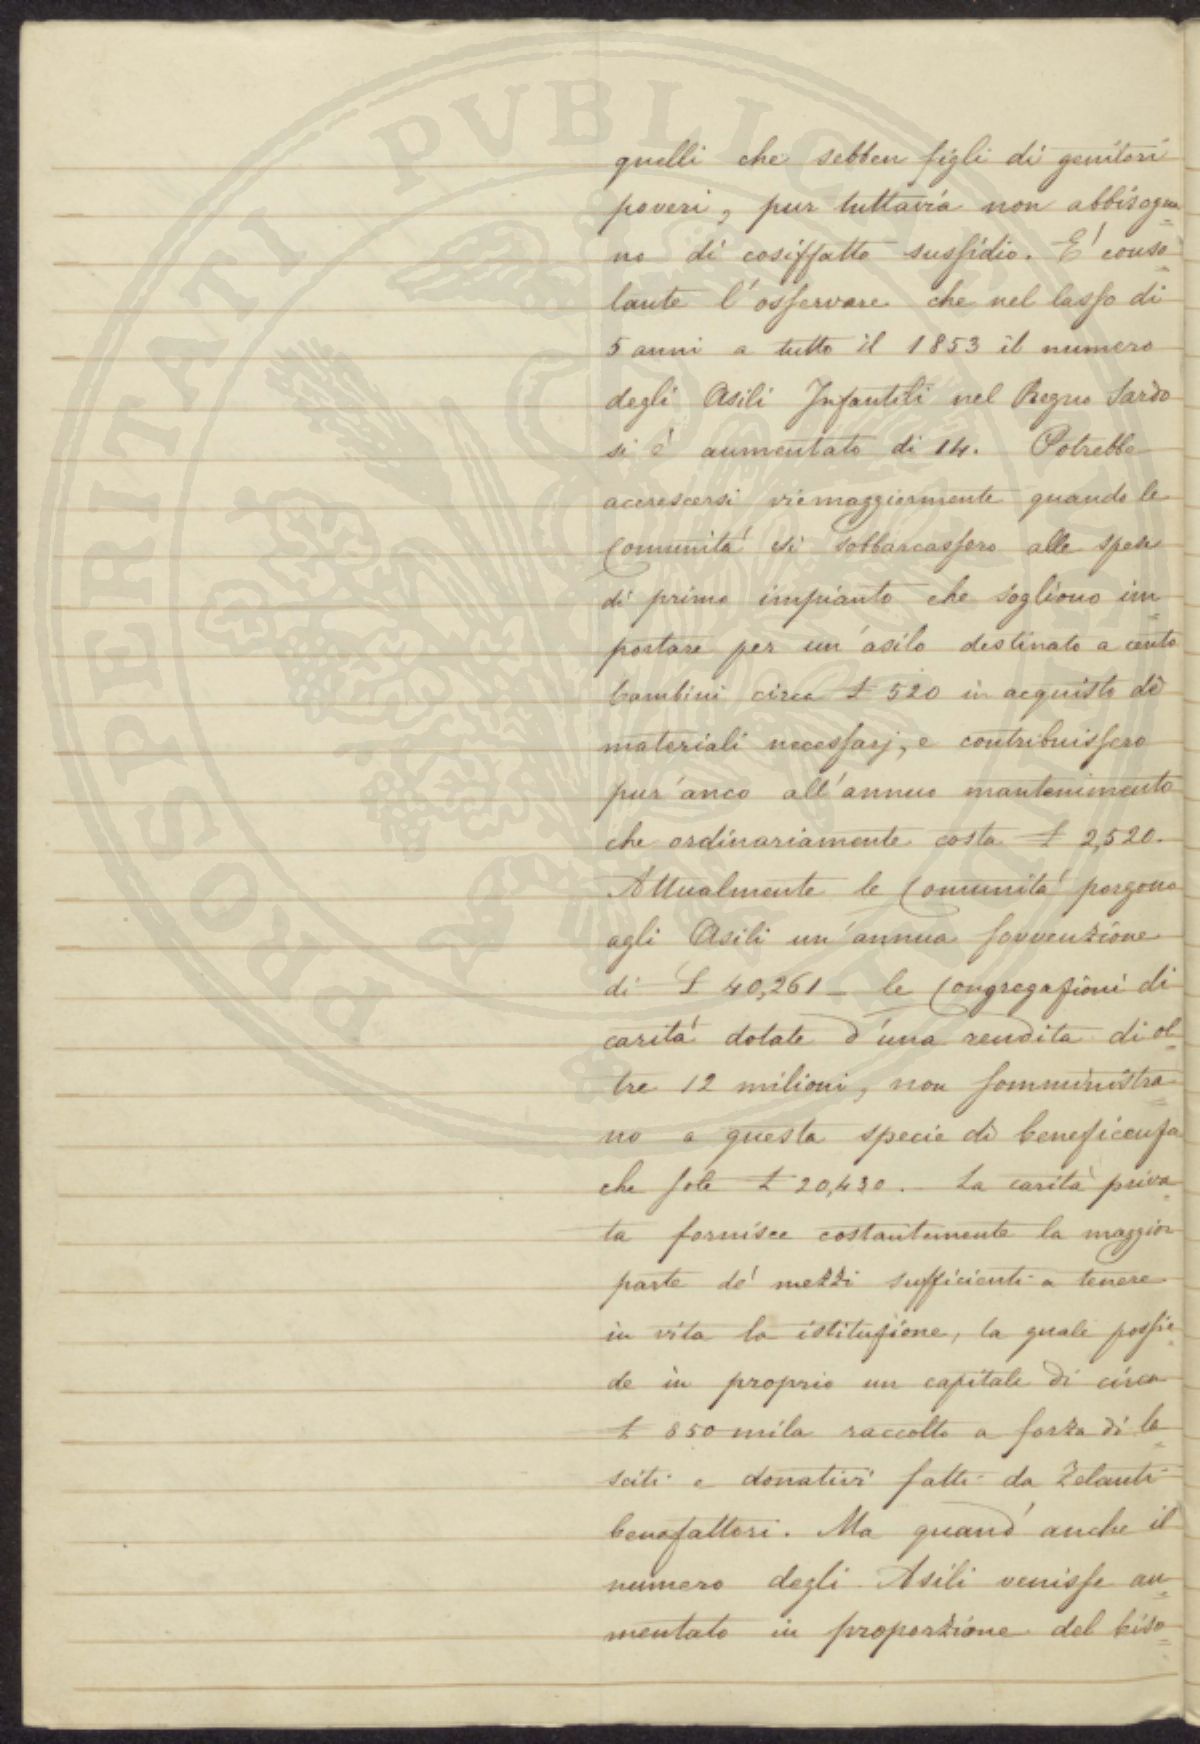 quelli che sebben figli di genitori
poveri, pur tuttavia non abbisogna=
no di cosiffatto sussidio. E' conso=
lante l'osservare che nel lasso di
5 anni a tutto il 1853 il numero
degli Asili Infantili nel Regno Sardo
si é aumentato di 14. Potrebbe
accrescersi viemaggiormente quando le
Comunitá si sobbarcassero alle spese
di primo impianto che sogliono im=
portare per un'asilo destinato a cento
bambini circa £ 520 in acquisto di
materiali necessarj, e contribuissero
pur'anco all'annuo mantenimento
che ordinariamente costa £ 2,520.
Attualmente le Comunitá porgono
agli Asili un'annua sovvenzione
di £ 40,261_ le Congregazioni di
caritá dotate d'una rendita di ol=
tre 12 milioni, non somministra=
no a questa specie di beneficenza
che sole £ 20,430. La caritá priva=
ta fornisce costantemente la maggior
parte de' mezzi sufficienti a tenere
in vita la istituzione, la quale possie=
de in proprio un capitale di circa
£ 850 mila raccolto a forza di la=
sciti e donativi fatti da zelanti
benefattori. Ma quand'anche il
numero degli Asili venisse au=
mentato in proporzione del biso=
PROSPERITATI PVBLICAE